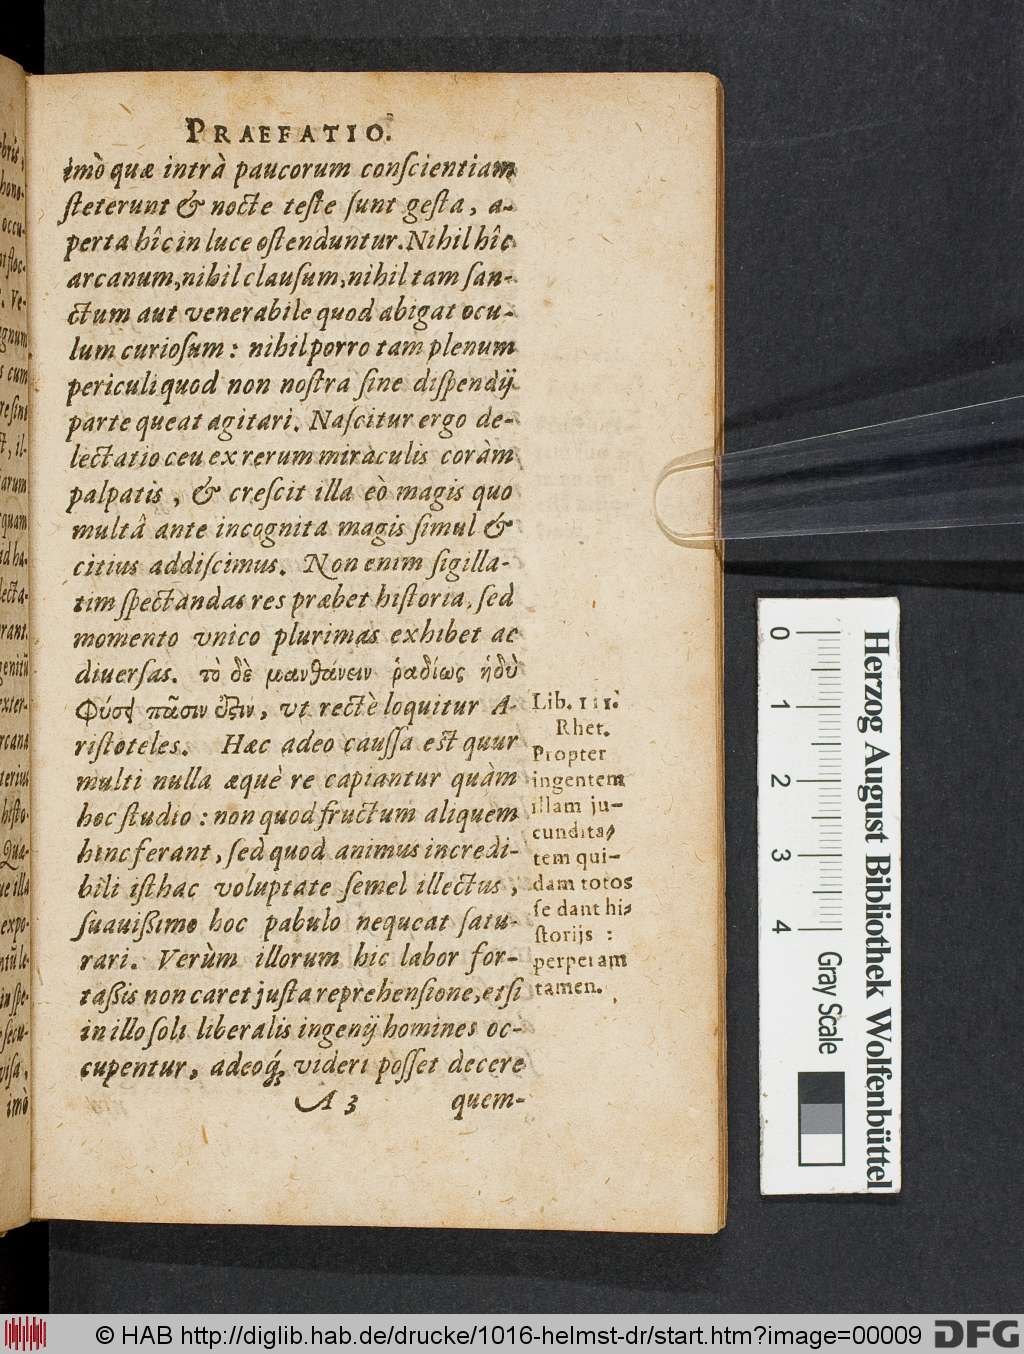 PRAEFATIO.
imò quæ intrà paucorum conſcientiam
ſteterunt & nocte teſte ſunt geſta, a-
perta hîc in luce oſtenduntur. Nihil hîc
arcanum, nihil clauſum, nihil tam ſan-
ctum aut venerabile quod abigat ocu-
lum curioſum: nihil porro tam plenum
periculi quod non noſtra ſine diſpendij
parte queat agitari. Naſcitur ergo de-
lectatio ceu ex rerum miràculis coràm
palpatis, & creſcit illa eò magis quo
multâ ante incognita magis ſimul &
citius addiſcimus. Non enim ſigilla-
tim ſpectandas res præbet hiſtoria, ſed
momento vnico plurimas exhibet ac
diuerſas. τὸ δὲ μανθάνειν ῥαδίως ἡδὺ
φύσει πᾶσιν ὄξιν, vt rectè loquitur A-
riſtoteles. Hæc adeo cauſſa est quur
multi nulla æquè re capiantur quàm
hoc ſtudio: non quod fructum aliquem
hinc ferant, ſed quod animus incredi-
bili iſthac voluptate ſemel illectus,
ſuauißimo hoc pabulo nequeat ſatu-
rari. Verùm illorum hic labor for-
taßis non caret juſta reprehenſione, etſi
in illo ſoli liberalis ingenij homines oc-
cupentur, adeoq́; videri poſſet decere
A 3 quem-
Lib. III.
Rhet.
Propter
ingentem
illam ju-
cundita-
tem qui-
dam totos
ſe dant hi-
ſtorijs :
perperam
tamen.
0 1 2 3 4
Gray Scale
Herzog August Bibliothek Wolfenbüttel
© HAB http://diglib.hab.de/drucke/1016-helmst-dr/start.htm?image=00009
DFG